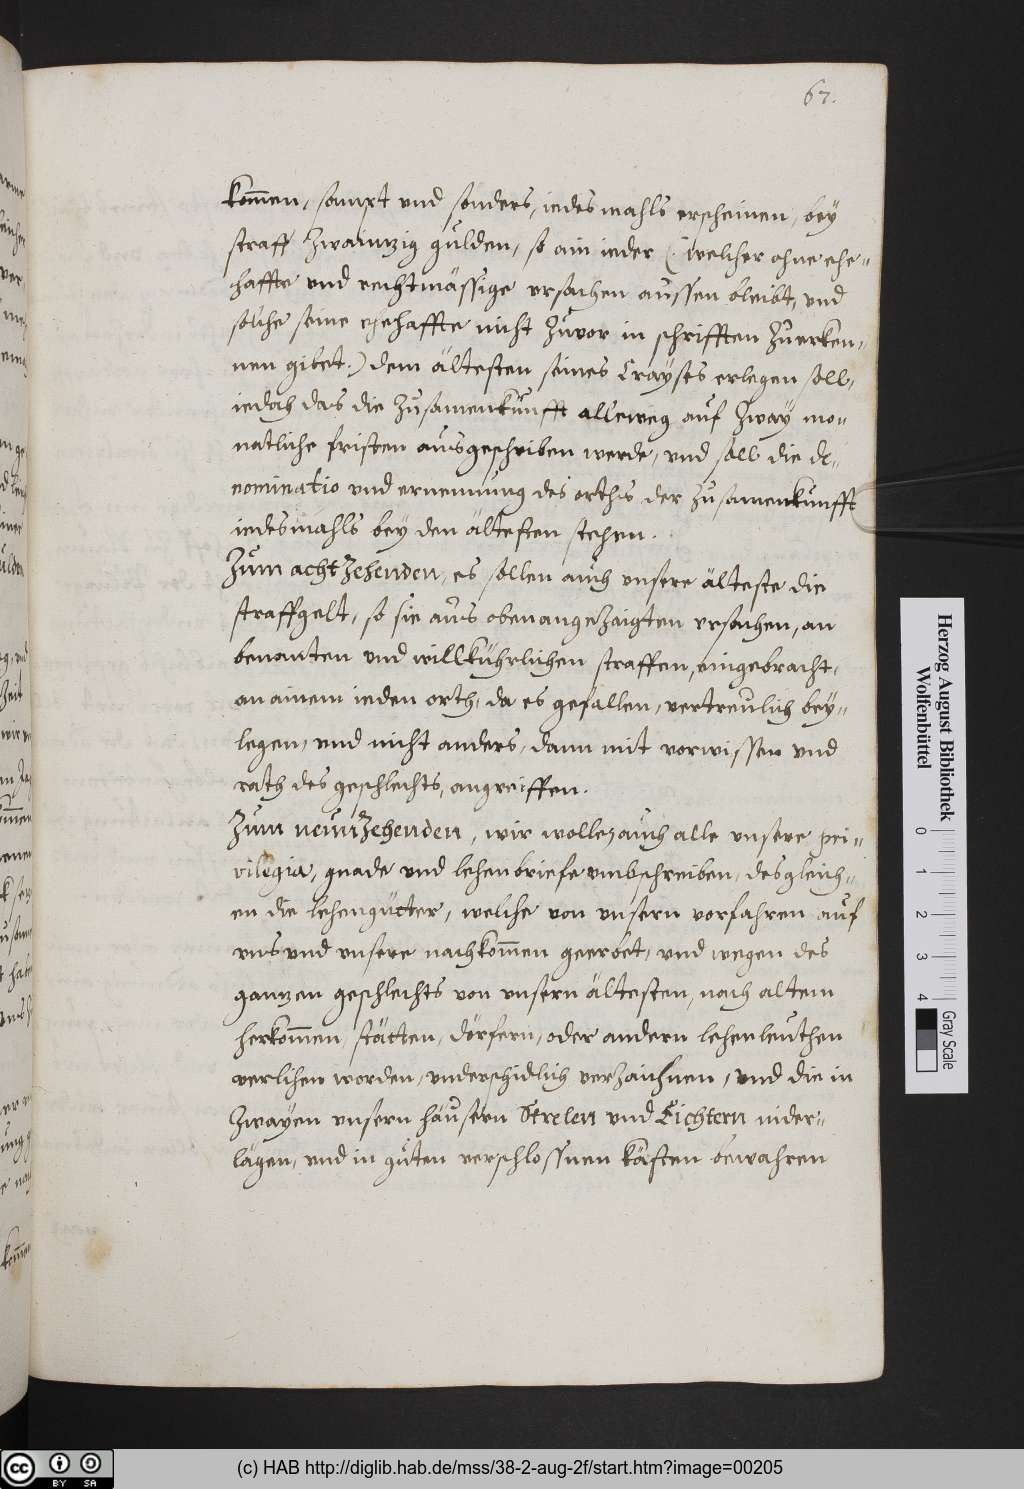 67.
kom̅en, sampt vnd sonders, iedesmahls erscheinen, bey
straff Zwaintzig gulden, so ain ieder (welcher ohne ehe=
haffte vnd rechtmässige vrsachen aussen bleibt, vnd
solche seine ehehaffte nicht Zuvor in schrifften Zuerken=
nen gibet.) dem ältesten seines Crayses erlegen soll,
iedoch das die Zusamenkunfft alleweg auf Zway mo=
natliche fristen ausgeschriben werde, vnd soll die de=
nominatio vnd ernennung des orths der Zusamenkunfft
iedesmahls bey den ältesten stehen.
Zum achtZehenden, es sollen auch vnsere älteste die
straffgelt, so sie aus obenangeZaigten vrsachen, an
benanten vnd willkührlichen straffen, eingebracht,
an ainem ieden orth, da es gefallen, vertreulich bey=
legen, vnd nicht anders, dann mit vorwissen vnd
rath des geschlechts, angreiffen.
Zum neunZehenden, wir wollen auch alle vnsere pri=
vilegia, gnade vnd lehenbriefe vmbschreiben, desgleich=
en die lehengütter, welche von vnsern vorfahren auf
vns vnd vnsere nachkom̅en geerbet, vnd wegen des
gantzen geschlechts von vnsern ältesten, nach altem
herkom̅en, stätten, dörfern, oder andern lehenleuthen
verlihen worden, vnderschidlich verZaichnen, vnd die in
Zwayen vnsern häusern Strelen vnd Eichtern nider=
lägen, vnd in guten verschlossnen kästen bewahren
Herzog August Bibliothek
Wolfenbüttel
0 1 2 3 4
Gray Scale
cc BY SA
(c) HAB http://diglib.hab.de/mss/38-2-aug-2f/start.htm?image=00205